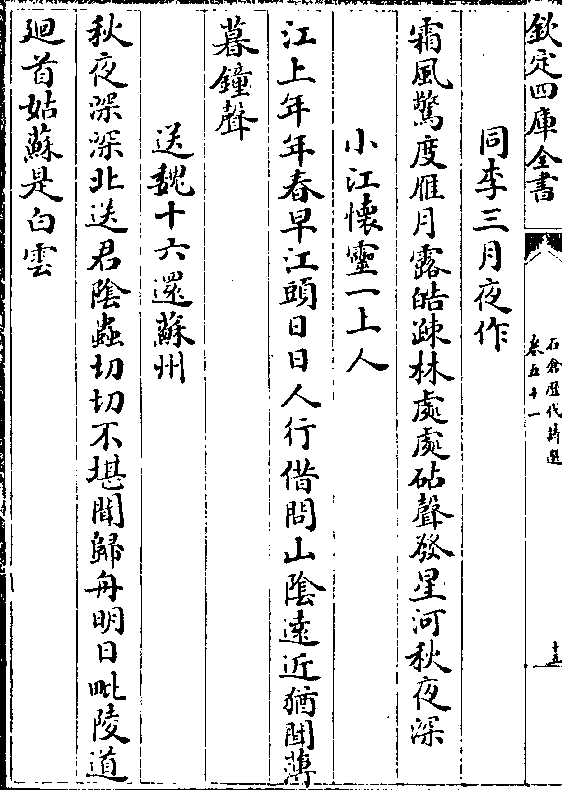 欽定四庫全書
石倉歷代詩選
卷五十一
十五
同李三月夜作
霜風驚度雁月露皓疎林處處砧聲發星河秋夜深
小江懷靈一上人
江上年年春早江頭日日人行借問山陰遠近猶聞薄
暮鐘聲
送魏十六還蘇州
秋夜深深北送君陰蟲切切不堪聞歸舟明日毗陵道
廻首姑蘇是白雲